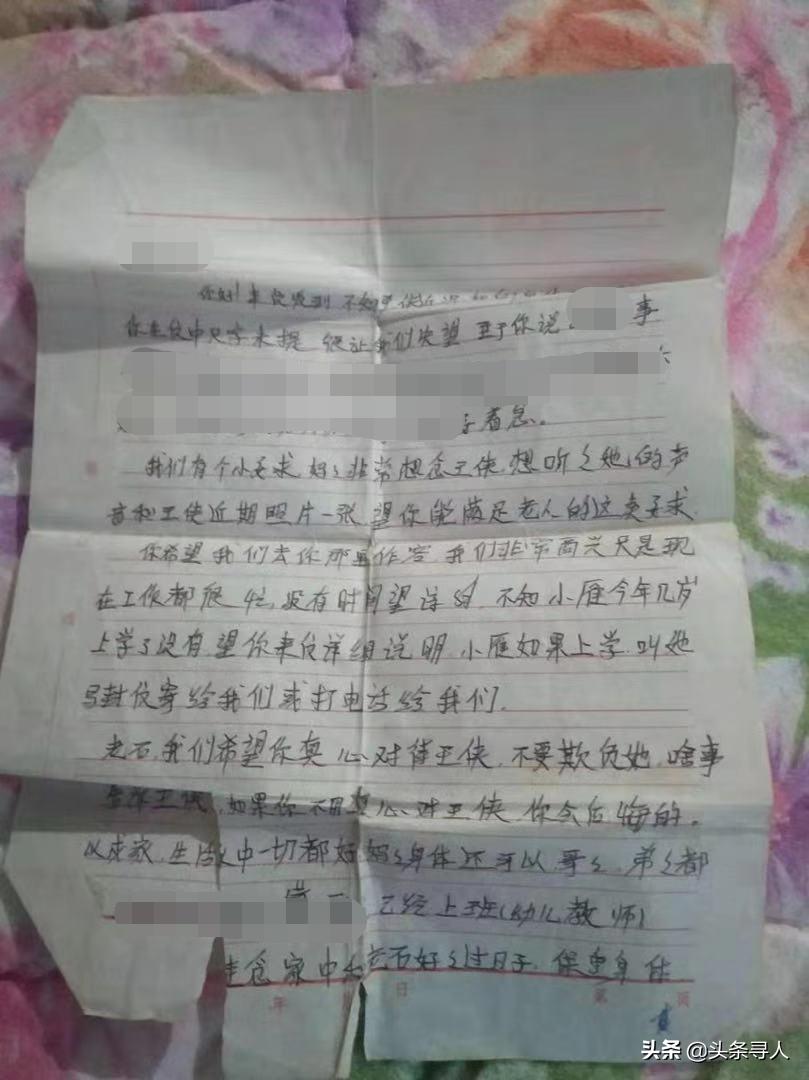 你好！来信收到 不知
你来信中只字未提 很让我们失望 至于你说 事
着急。
我们有个小要求 妈々非常想念王侠 想听々她的声
音和王侠近期照片一张 望你能满足老人的这点要求
你希望我们去你那里作客 我们非常高兴 只是现
在工作都很忙 没有时间望谅 不知小雁今年几岁
上学了没有 望你来信详细说明 小雁如果上学 叫她
写封信寄给我们或打电话给我们.
老石, 我们希望你真心对待王侠, 不要欺负她, 啥事
王侠, 如果你不用真心对王侠 你会后悔的.
以成家, 生活中一切都好 妈々身体还可以, 哥々, 弟々都
已经上班(幼儿教师)
念家中 老石好々过日子. 保重身体
年 月 日 第 页
头条 @头条寻人